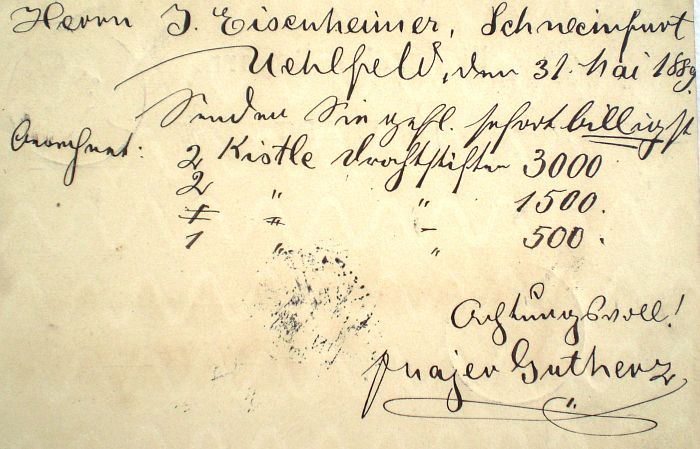 Herrn J. Eisenheimer, Schweinfurt
Uehlfeld, den 31. Mai 1889
Senden Sie gefl. sofort billigst
berechnet:
2 Kistle Drahtstiften 3000
2 " " 1500.
1 "
1 " " 500.
Achtungsvoll!
Majer Gutherz